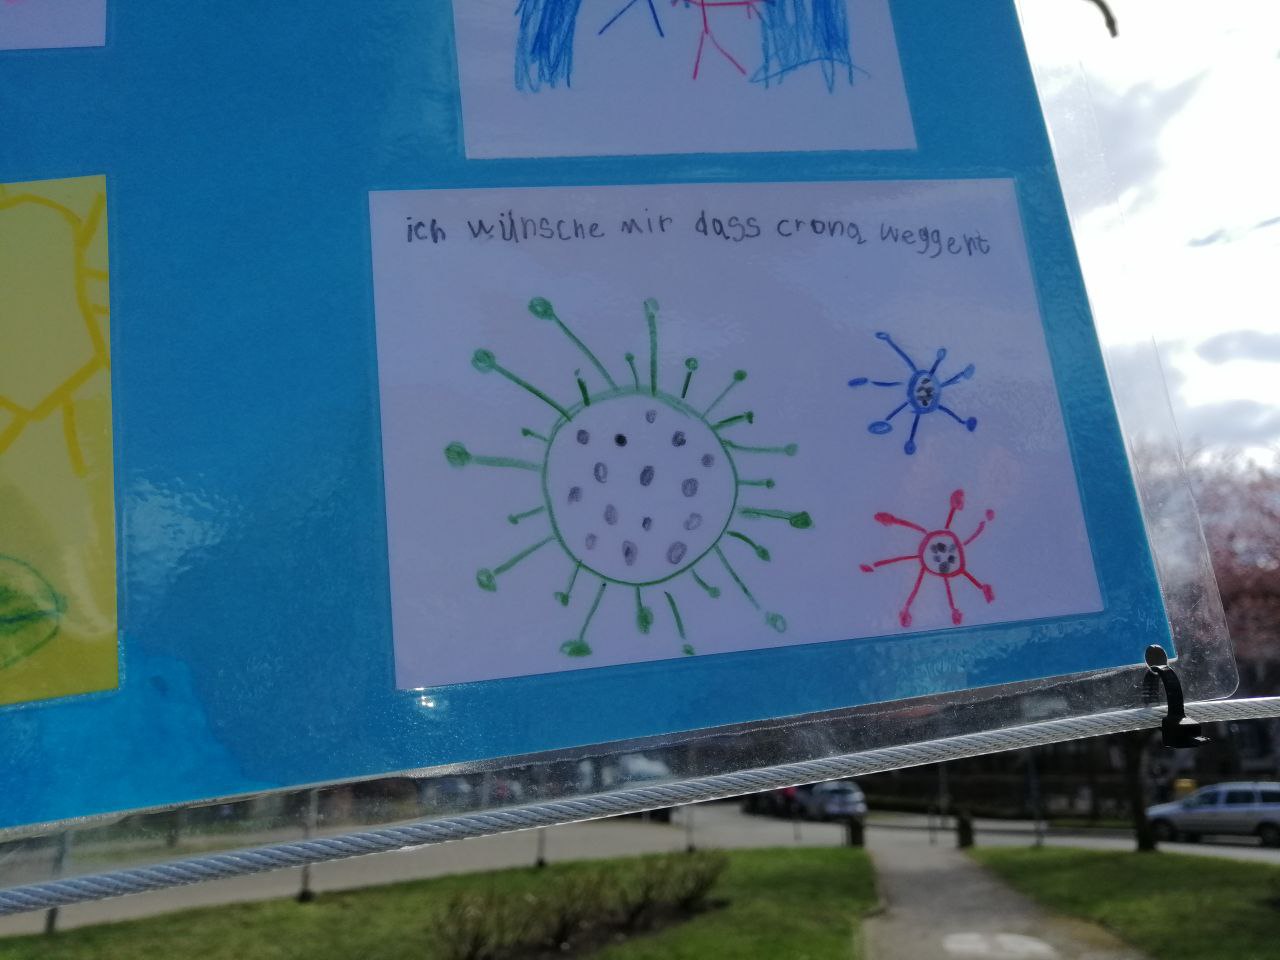 ich wünsche mir dass crona weggeht